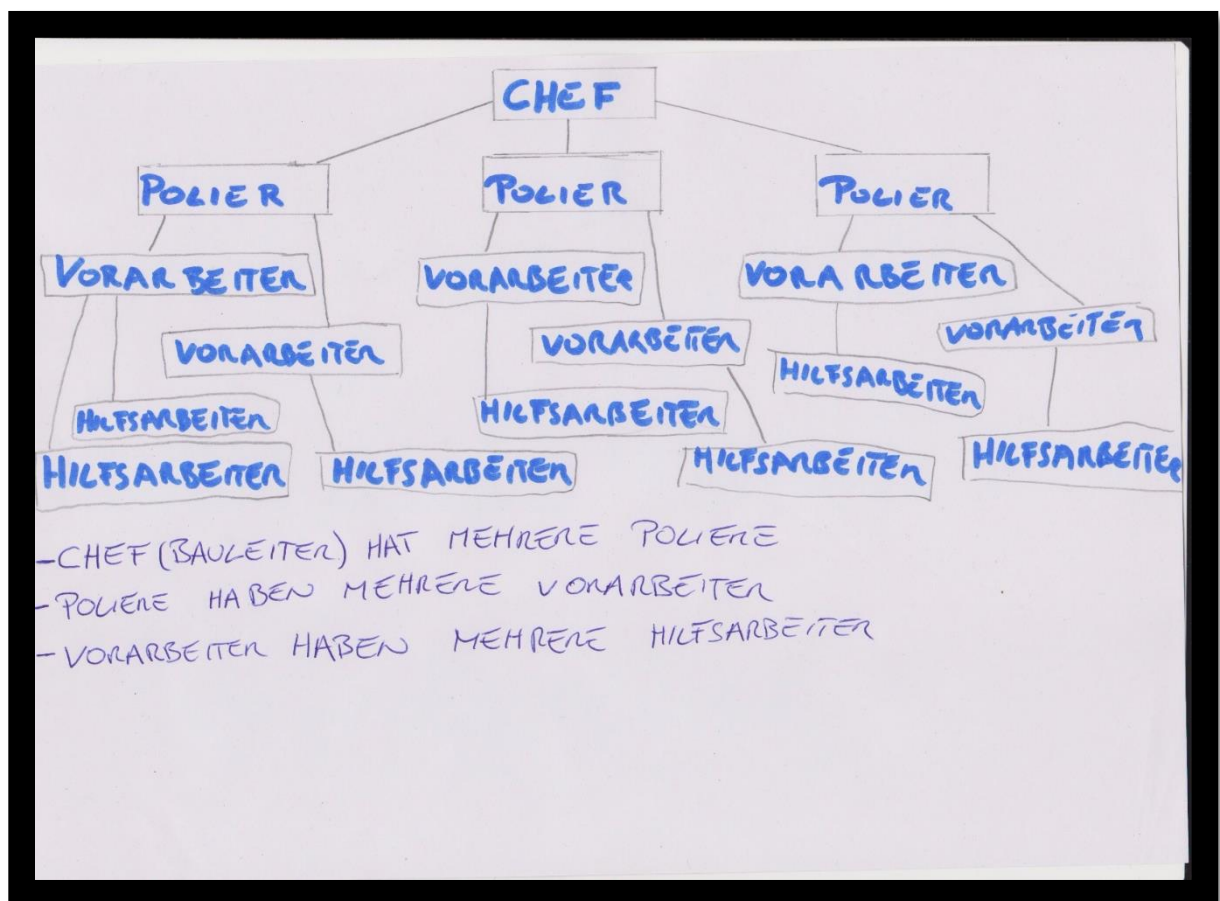 CHEF
POLIER POLIER POLIER
VORARBEITER VORARBEITER VORARBEITER
VORARBEITER VORARBEITER VORARBEITER
HILFSARBEITER
HILFSARBEITER HILFSARBEITER
HILFSARBEITER HILFSARBEITER HILFSARBEITER HILFSARBEITER
- CHEF (BAULEITER) HAT MEHRERE POLIERE
- POLIERE HABEN MEHRERE VORARBEITER
- VORARBEITER HABEN MEHRERE HILFSARBEITER